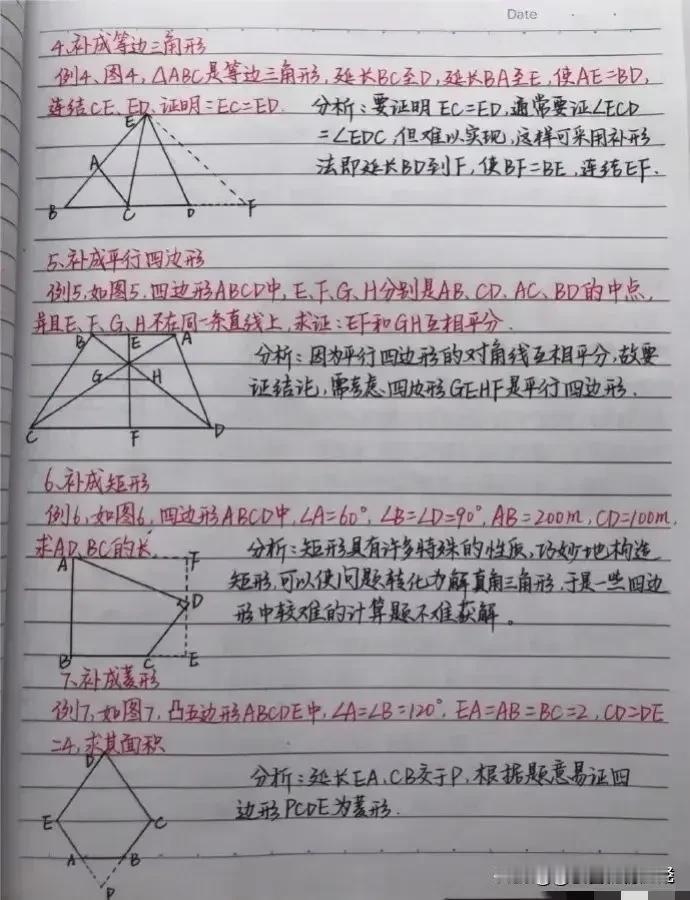 Date
4、补成等边三角形
例4、图4，△ABC是等边三角形，延长BC至D，延长BA至E，使AE=BD，
连结CE、ED，证明=EC=ED.
分析：要证明EC=ED，通常要证∠ECD
=∠EDC，但难以实现，这样可采用补形
法即延长BD到F，使BF=BE，连结EF.
E
A
B C D F
5、补成平行四边形
例5，如图5，四边形ABCD中，E、F、G、H分别是AB、CD、AC、BD的中点，
并且E、F、G、H不在同一条直线上，求证：EF和GH互相平分.
分析：因为平行四边形的对角线互相平分，故要
证结论，需考虑四边形GEHF是平行四边形.
B E A
G H
C F D
6、补成矩形
例6，如图6，四边形ABCD中，∠A=60°，∠B=∠D=90°，AB=200m，CD=100m，
求AD、BC的长.
分析：矩形具有许多特殊的性质，巧妙地构造
矩形，可以使问题转化为解直角三角形，于是一些四边
形中较难的计算题不难获解。
A F
D
B C E
7、补成菱形
例7，如图7，凸五边形ABCDE中，∠A=∠B=120°，EA=AB=BC=2，CD=DE
=4，求其面积
分析：延长EA、CB交于P，根据题意易证四
边形PCDE为菱形.
D
E C
A B
P